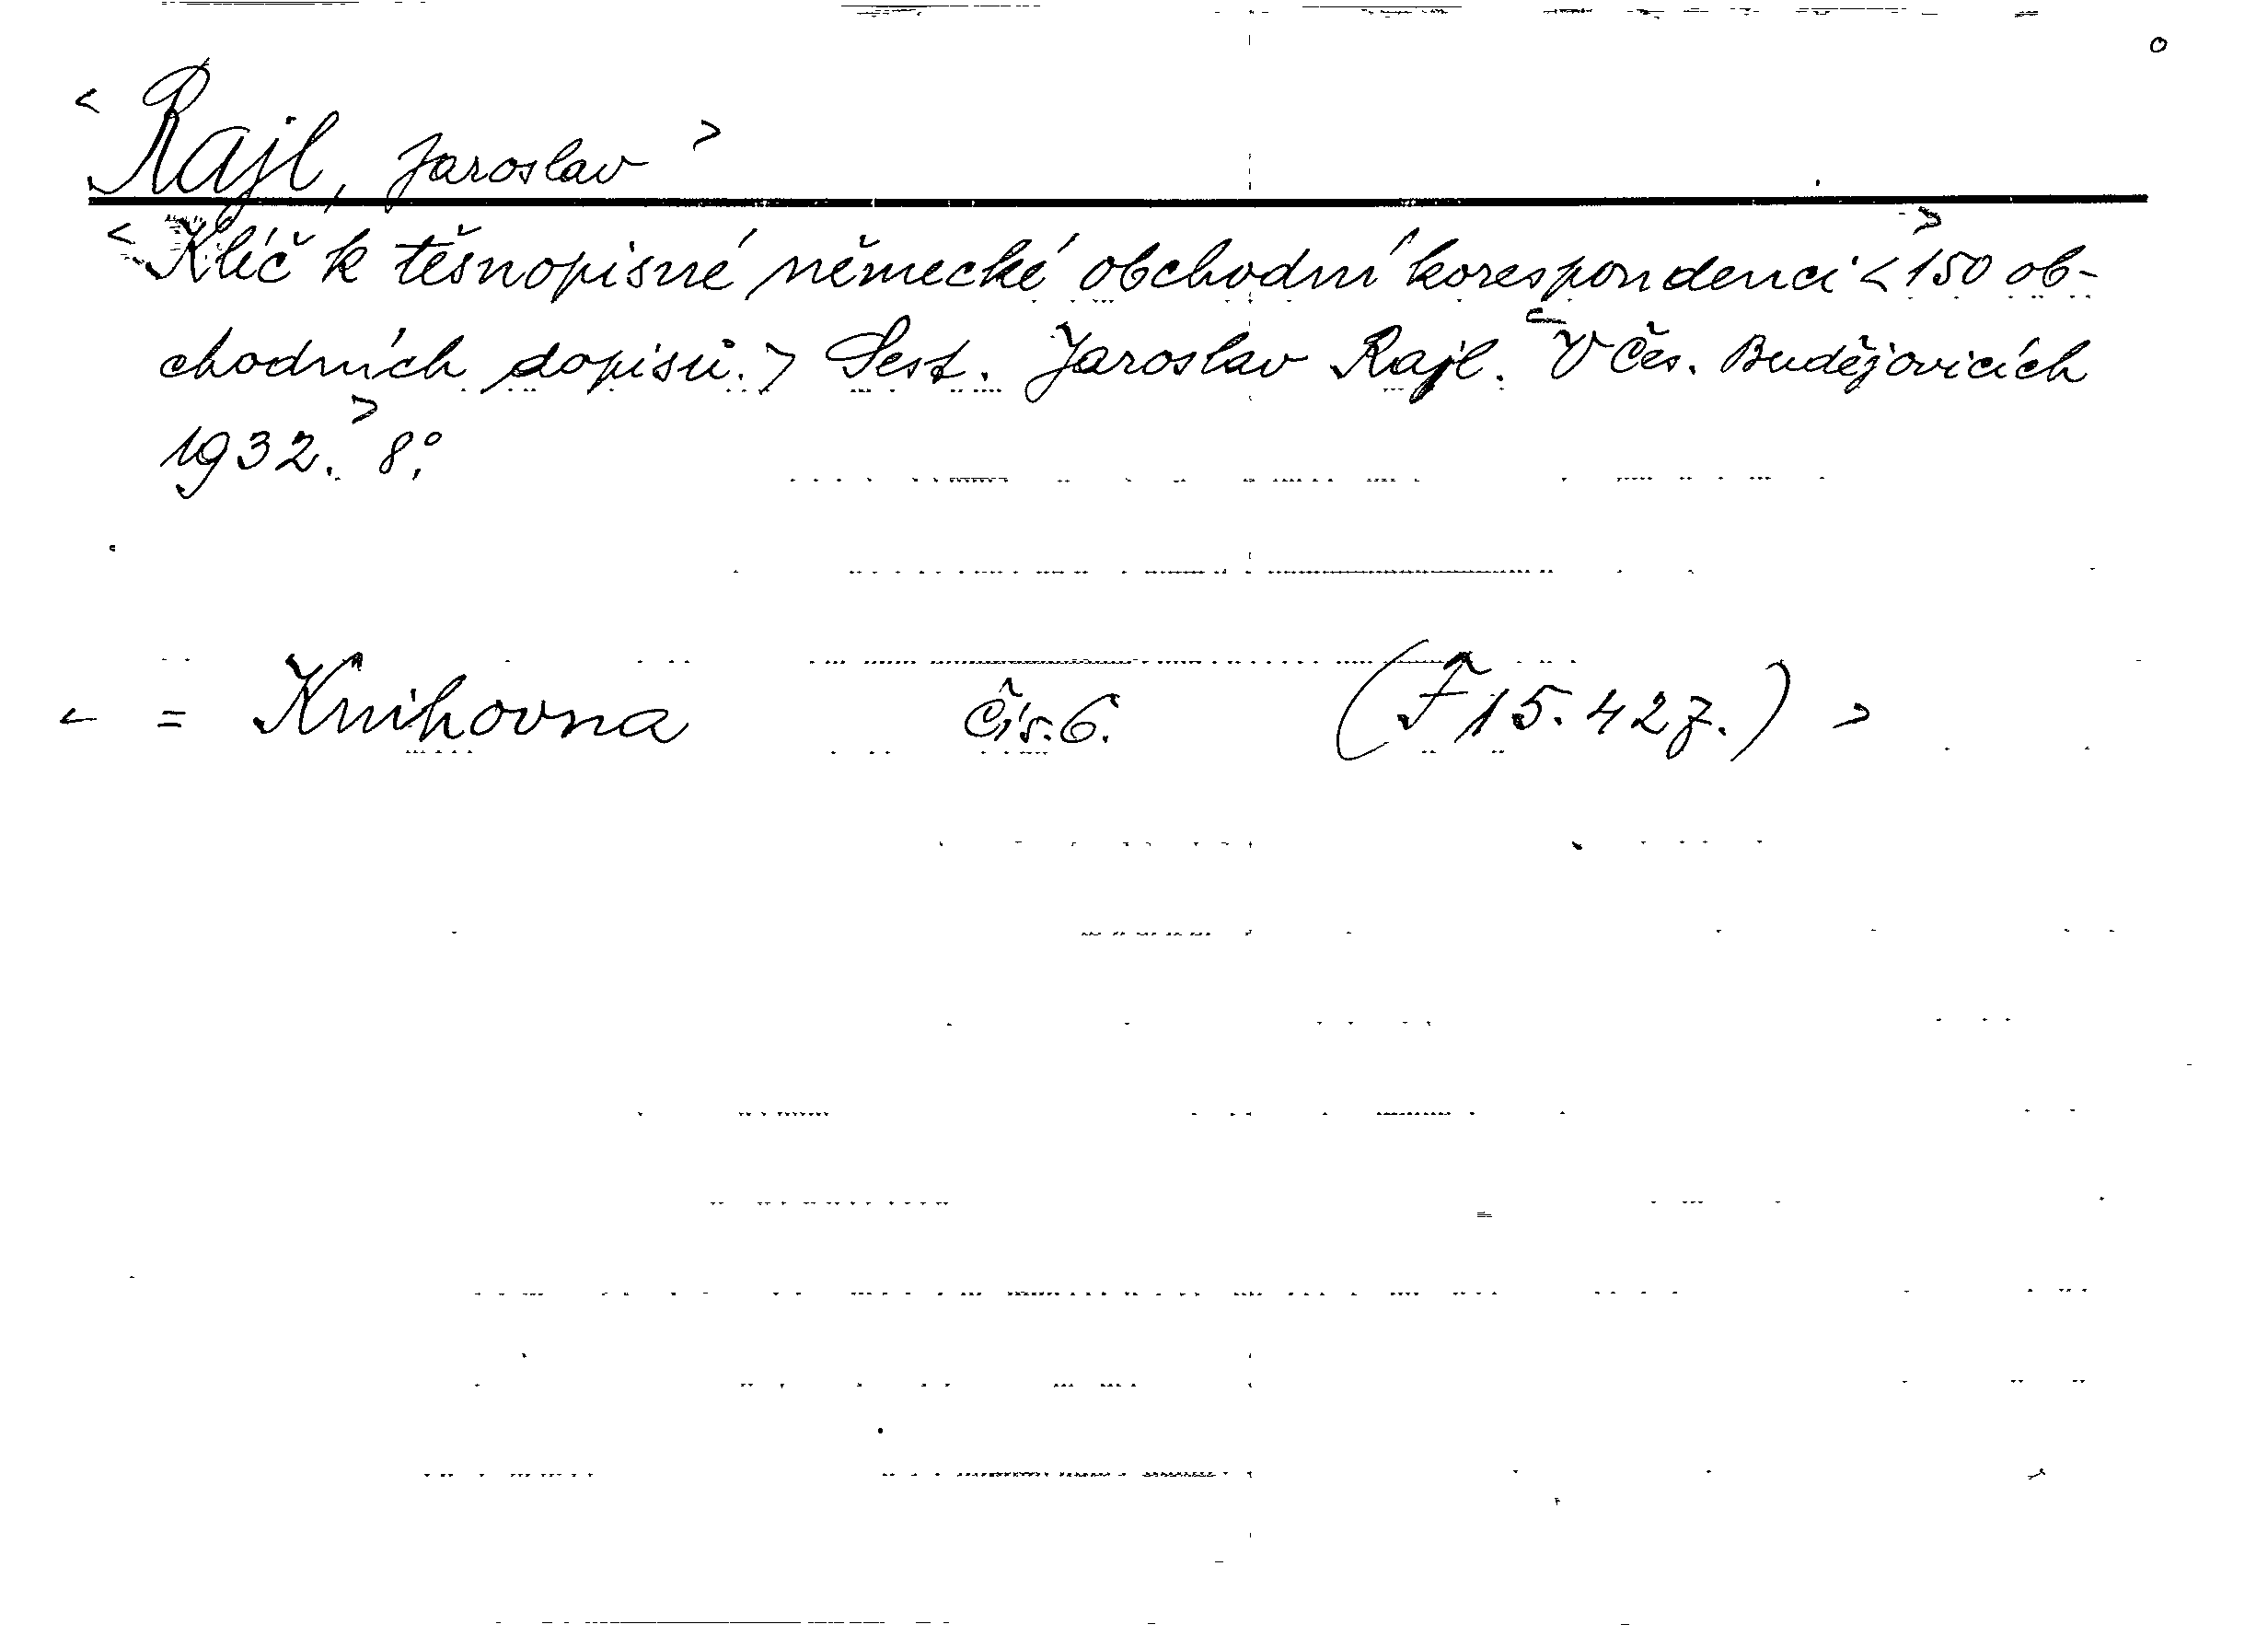 <Rajl, Jaroslav>
<Klíč k těsnopisné německé obchodní korespondenci <150 ob-
chodních dopisů.> Sest. Jaroslav Rajl. V Čes. Budějovicích
1932.> 8°.
< = Knihovna Čís. 6. (F 15.427.) >